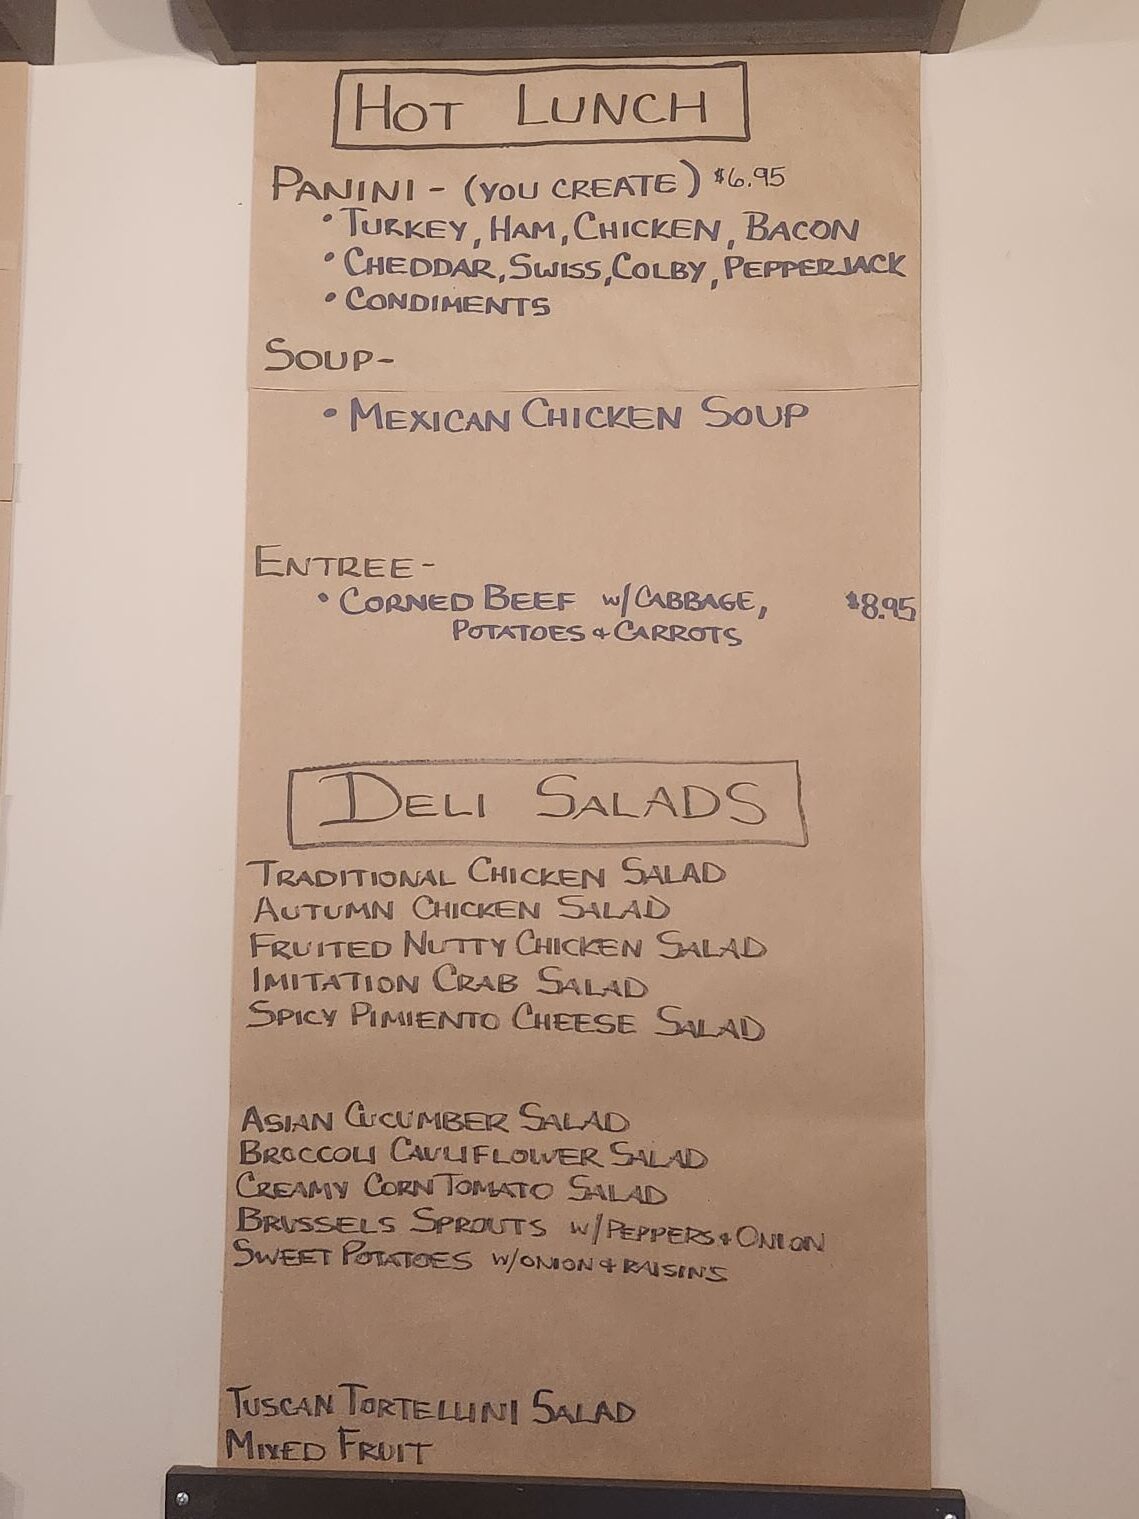 HOT LUNCH
PANINI - (YOU CREATE) $6.95
• TURKEY, HAM, CHICKEN, BACON
• CHEDDAR, SWISS, COLBY, PEPPERJACK
• CONDIMENTS
SOUP-
• MEXICAN CHICKEN SOUP
ENTREE-
• CORNED BEEF w/CABBAGE, $8.95
POTATOES + CARROTS
DELI SALADS
TRADITIONAL CHICKEN SALAD
AUTUMN CHICKEN SALAD
FRUITED NUTTY CHICKEN SALAD
IMITATION CRAB SALAD
SPICY PIMIENTO CHEESE SALAD
ASIAN CUCUMBER SALAD
BROCCOLI CAULIFLOWER SALAD
CREAMY CORN TOMATO SALAD
BRUSSELS SPROUTS w/PEPPERS + ONION
SWEET POTATOES w/ONION + RAISINS
TUSCAN TORTELLINI SALAD
MIXED FRUIT